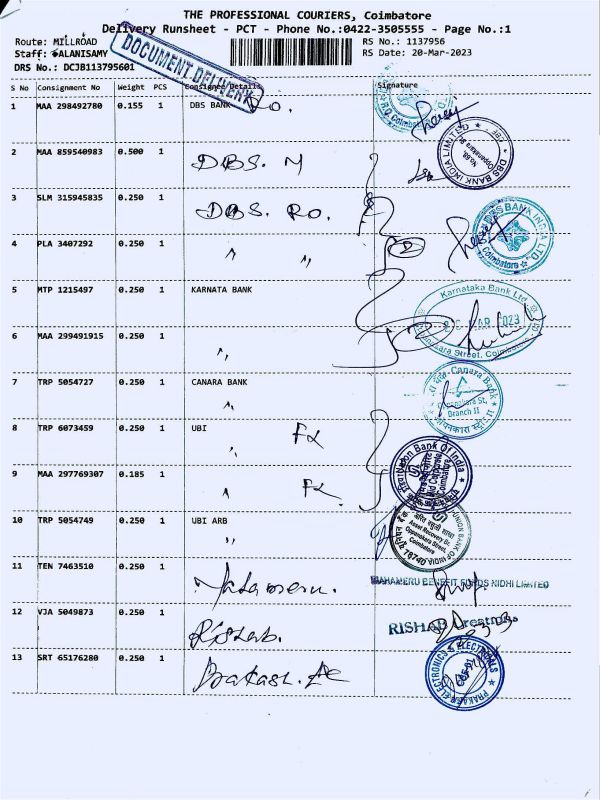 THE PROFESSIONAL COURIERS, Coimbatore
Delivery Runsheet - PCT - Phone No.:0422-3505555 - Page No.:1
Route: MILLROAD RS No.: 1137956
Staff: PALANISAMY RS Date: 20-Mar-2023
DRS No.: DCJB113795601
DOCUMENT DELIVERY
S No Consignment No Weight PCS Consignee Details Signature
1 MAA 298492780 0.155 1 DBS BANK R.O.
2 MAA 859540983 0.500 1 DBS. M
DBS BANK INDIA LIMITED
3 SLM 315945835 0.250 1 DBS. RO.
DBS BANK INDIA LTD.
Coimbatore
4 PLA 3407292 0.250 1 " "
5 MTP 1215497 0.250 1 KARNATA BANK
Karnataka Bank Ltd
MAR 2023
6 MAA 299491915 0.250 1 "
7 TRP 5054727 0.250 1 CANARA BANK "
Canara Bank
Branch II
8 TRP 6073459 0.250 1 UBI "
Union Bank Of India
9 MAA 297769307 0.185 1 "
10 TRP 5054749 0.250 1 UBI ARB "
UNION BANK OF INDIA
Asset Recovery Br
Oppanakara Street,
Coimbatore
11 TEN 7463510 0.250 1 Mahameru.
MAHAMERU BENEFIT FUNDS NIDHI LIMITED
12 VJA 5049873 0.250 1 Rishab.
RISHAB Creations
13 SRT 65176280 0.250 1 Prakash. Ele
PRAKASH ELECTRONICS & ELECTRICALS